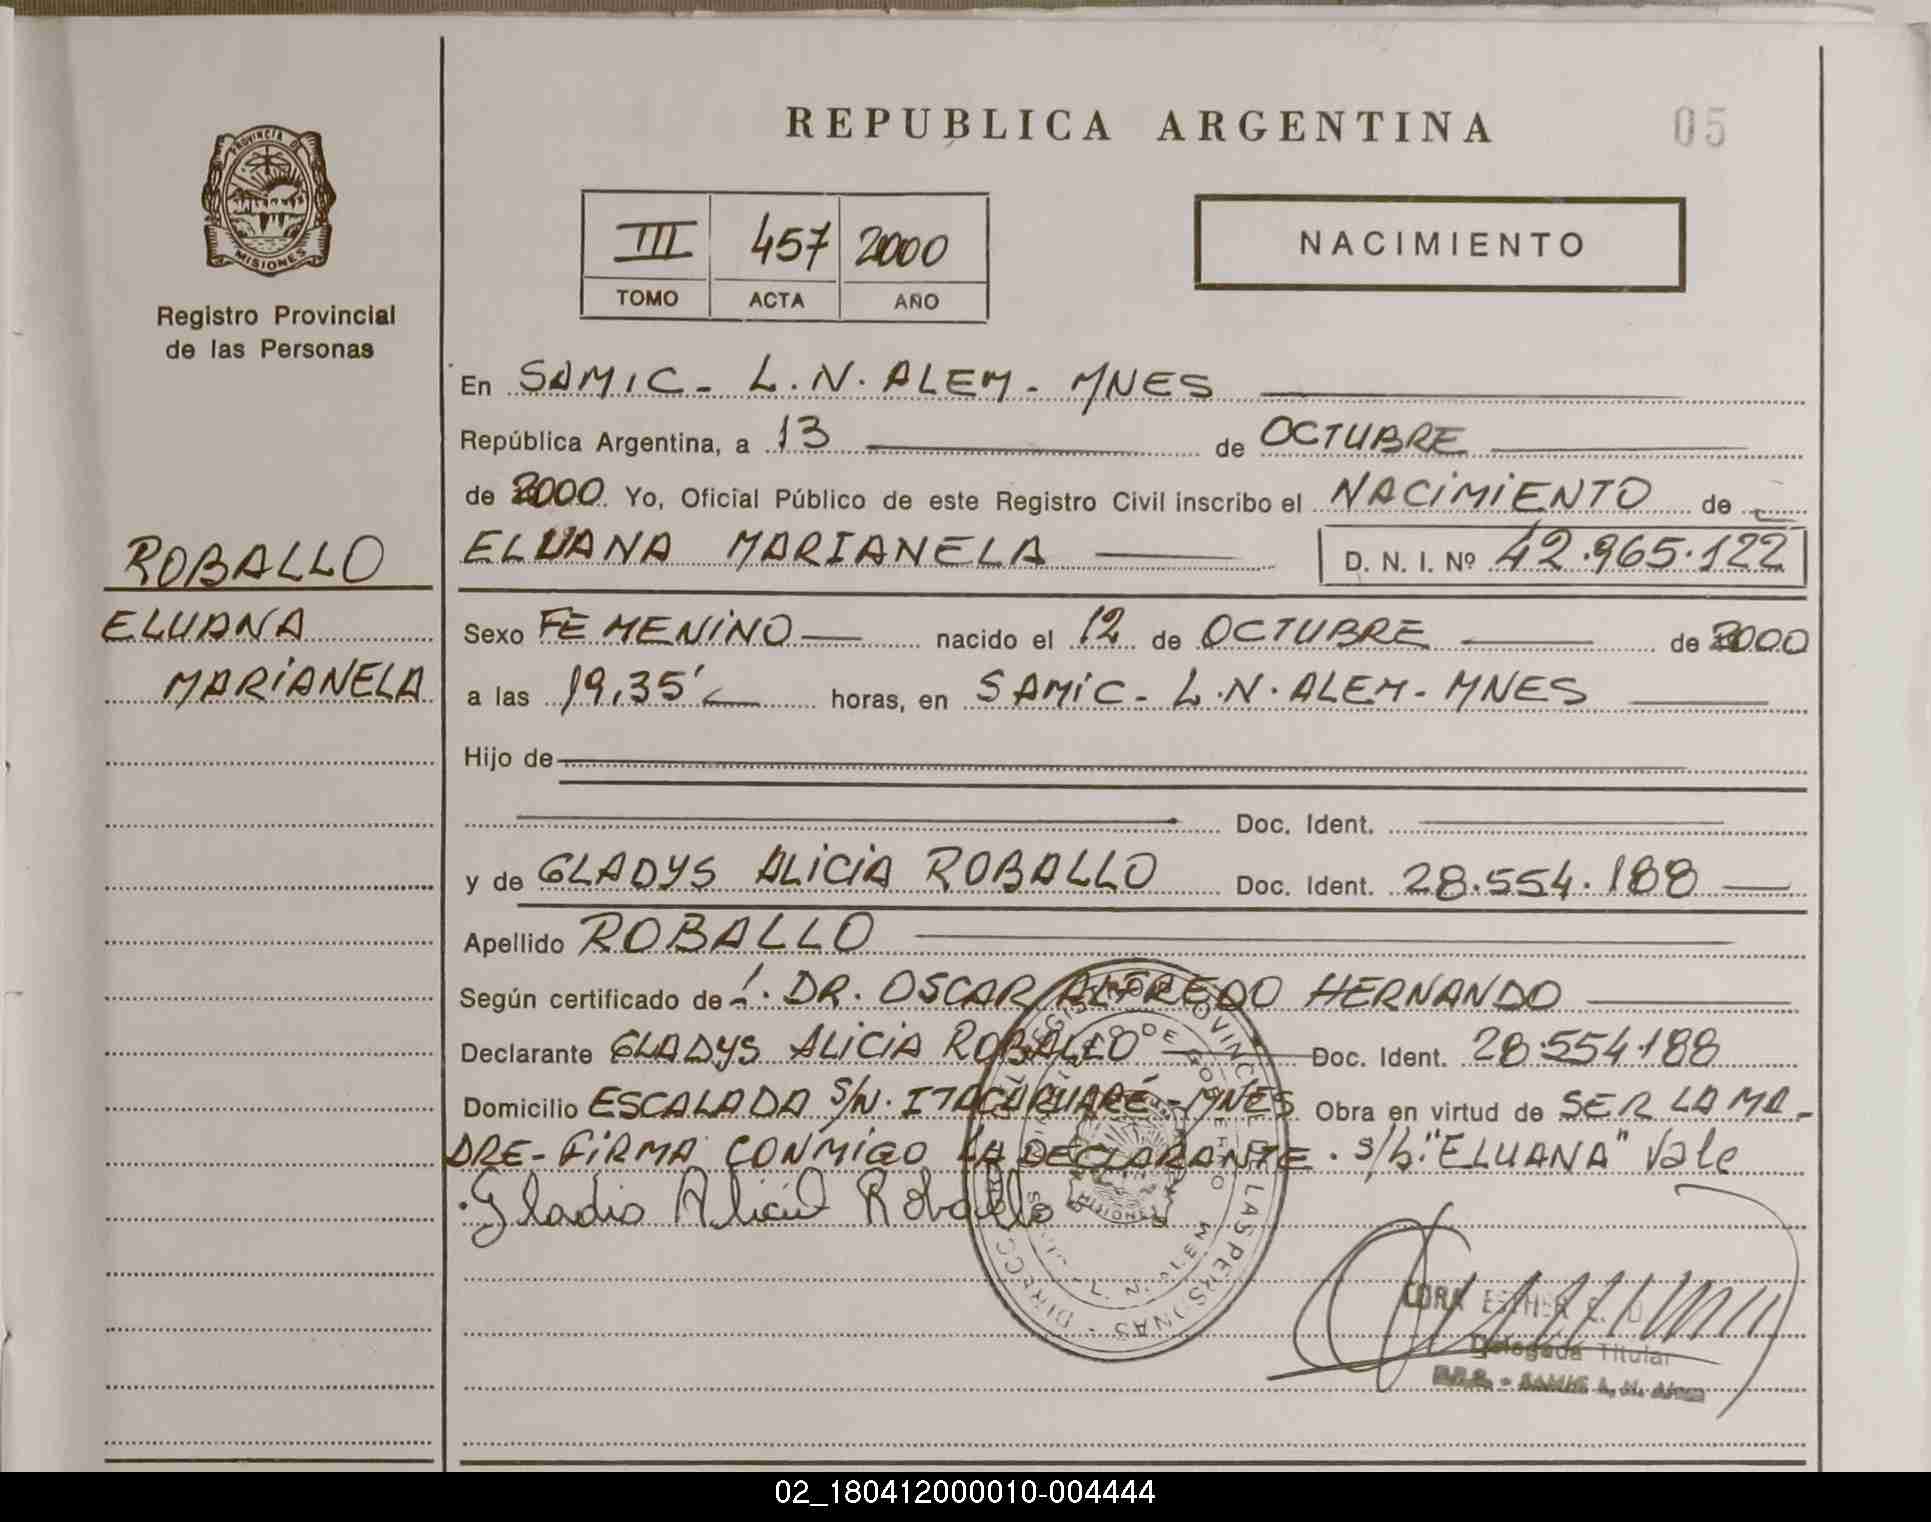 REPUBLICA ARGENTINA
05
PROVINCIA DE
MISIONES
Registro Provincial
de las Personas
III 457 2000
TOMO ACTA AÑO
NACIMIENTO
En SAMIC - L.N. ALEM - MNES
República Argentina, a 13 de OCTUBRE
de 2000. Yo, Oficial Público de este Registro Civil inscribo el NACIMIENTO de
ROBALLO
ELUANA MARIANELA D. N. I. Nº 42.965.122
ELUANA
Sexo FEMENINO nacido el 12 de OCTUBRE de 2000
MARIANELA
a las 19,35' horas, en SAMIC - L.N. ALEM - MNES
Hijo de
Doc. Ident.
y de GLADYS ALICIA ROBALLO Doc. Ident. 28.554.188
Apellido ROBALLO
Según certificado de DR. OSCAR ALFREDO HERNANDO
Declarante GLADYS ALICIA ROBALLO Doc. Ident. 28.554.188
Domicilio ESCALADA S/N. ITACARUARÉ - MNES Obra en virtud de SER LA MA-
DRE - FIRMA CONMIGO LA DECLARANTE. s/b: "ELUANA" Vale
Gladis Alicia Roballo
ESTHER
Delegada Titular
SAMIC L. N. Alem
02_180412000010-004444